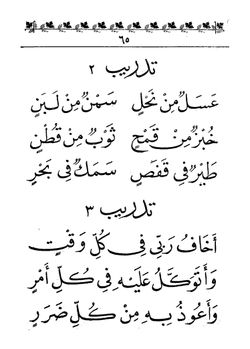 ٦٥
تدريب ٢
عَسَلٌ مِنْ نَحْلٍ سَمْنٌ مِنْ لَبَنٍ
خُبْزٌ مِنْ قَمْحٍ ثَوْبٌ مِنْ قُطْنٍ
طَيْرٌ فِي قَفَصٍ سَمَكٌ فِي بَحْرٍ
تدريب ٣
أَخَافُ رَبِّي فِي كُلِّ وَقْتٍ
وَأَتَوَكَّلُ عَلَيْهِ فِي كُلِّ أَمْرٍ
وَأَعُوذُ بِهِ مِنْ كُلِّ ضَرَرٍ